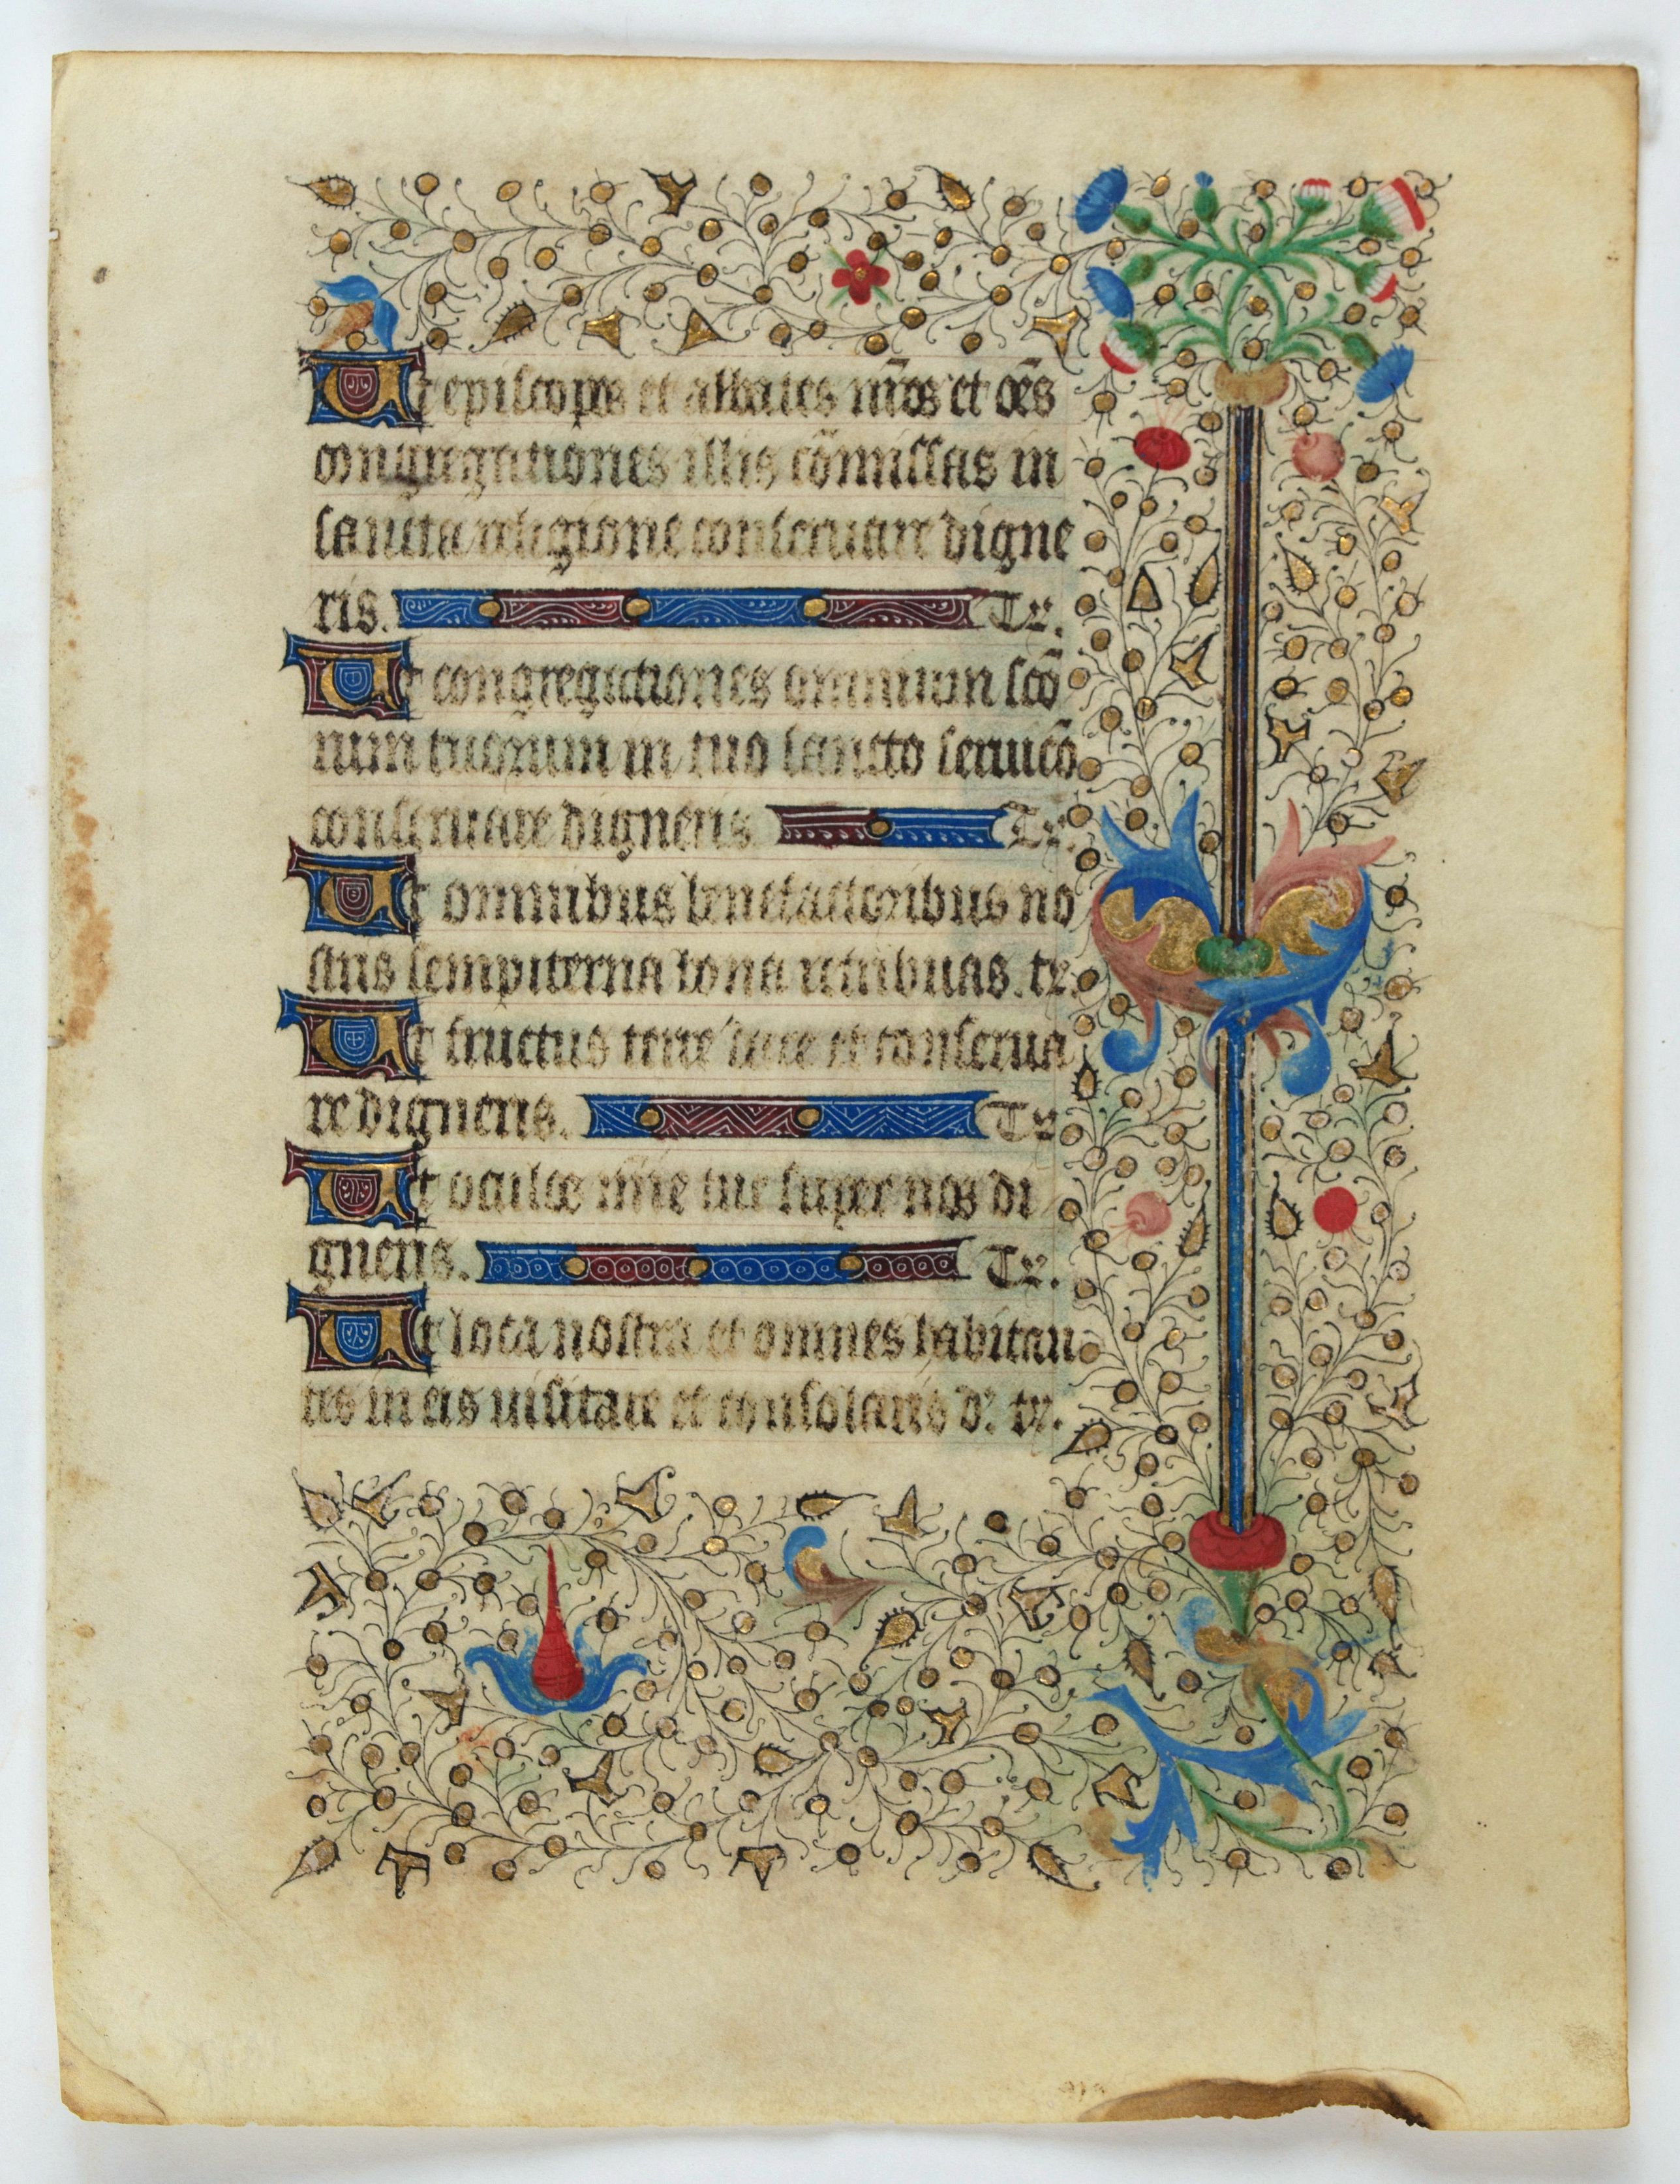 Ut episcopos et abbates nr̄os et oēs
congregationes illis cōmissas in
sancta religione conseruare digne
ris. Te.
Ut congregationes omnium scō
rum tuorum in tuo sancto seruicō
conseruare digneris Te.
Ut omnibus benefactoribus no
stris sempiterna bona retribuas. te.
Ut fructus terre dare et conserua
re digneris. Te
Ut oculos mīe tue super nos di
gneris. Te.
Ut loca nostra et omnes habitan
tes in eis uisitare et consolaris d'. te.